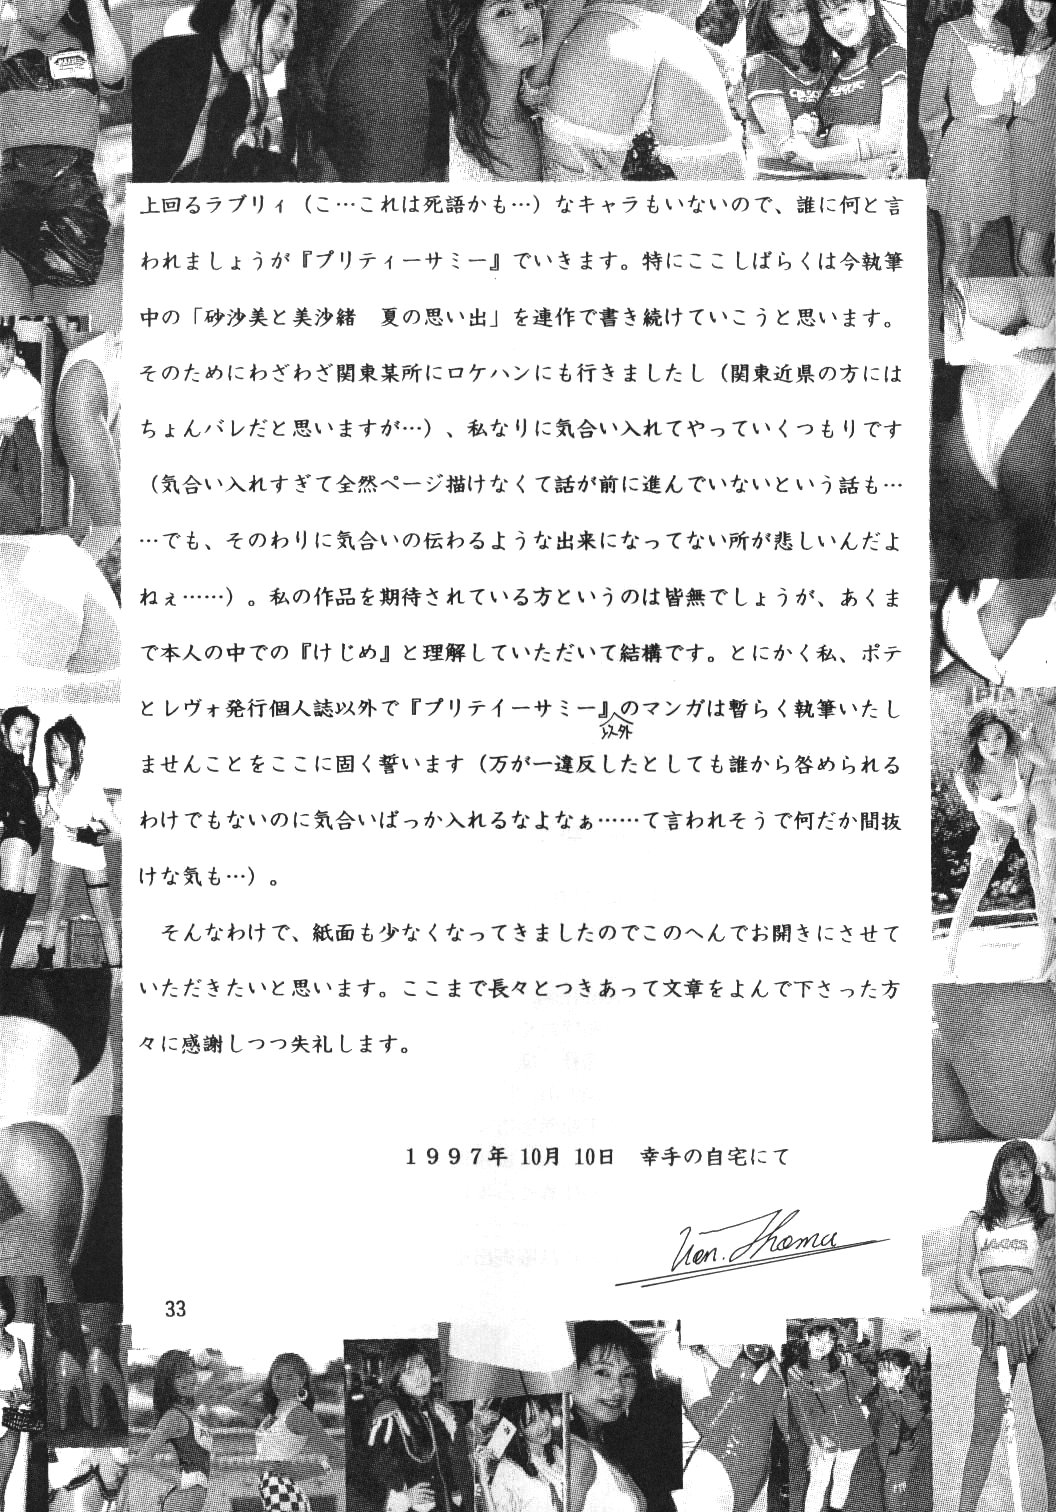 上回るラブリィ（こ…これは死語かも…）なキャラもいないので、誰に何と言
われましょうが『プリティーサミー』でいきます。特にここしばらくは今執筆
中の「砂沙美と美沙緒　夏の思い出」を連作で書き続けていこうと思います。
そのためにわざわざ関東某所にロケハンにも行きましたし（関東近県の方には
ちょんバレだと思いますが…）、私なりに気合い入れてやっていくつもりです
（気合い入れすぎて全然ページ描けなくて話が前に進んでいないという話も…
…でも、そのわりに気合いの伝わるような出来になってない所が悲しいんだよ
ねぇ……）。私の作品を期待されている方というのは皆無でしょうが、あくま
で本人の中での『けじめ』と理解していただいて結構です。とにかく私、ポテ
とレヴォ発行個人誌以外で『プリテイーサミー』のマンガは暫らく執筆いたし
以外
ませんことをここに固く誓います（万が一違反したとしても誰から咎められる
わけでもないのに気合いばっか入れるなよなぁ……て言われそうで何だか間抜
けな気も…）。
そんなわけで、紙面も少なくなってきましたのでこのへんでお開きにさせて
いただきたいと思います。ここまで長々とつきあって文章をよんで下さった方
々に感謝しつつ失礼します。
１９９７年 10月 10日　幸手の自宅にて
33
JACCS